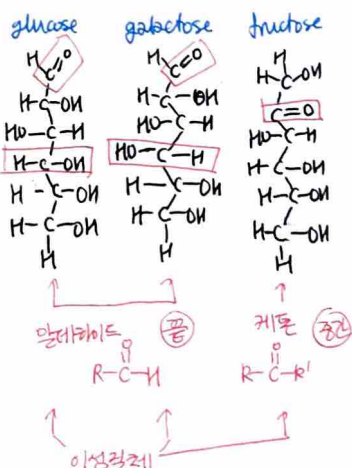 glucose galactose fructose
H C=O H C=O H
H-C-OH H-C-OH H-C-OH
HO-C-H HO-C-H C=O
H-C-OH HO-C-H HO-C-H
H-C-OH H-C-OH H-C-OH
H-C-OH H-C-OH H-C-OH
H H H-C-OH
H
알데하이드 끝 케톤 중간
O O
R-C-H R-C-R'
이성질체